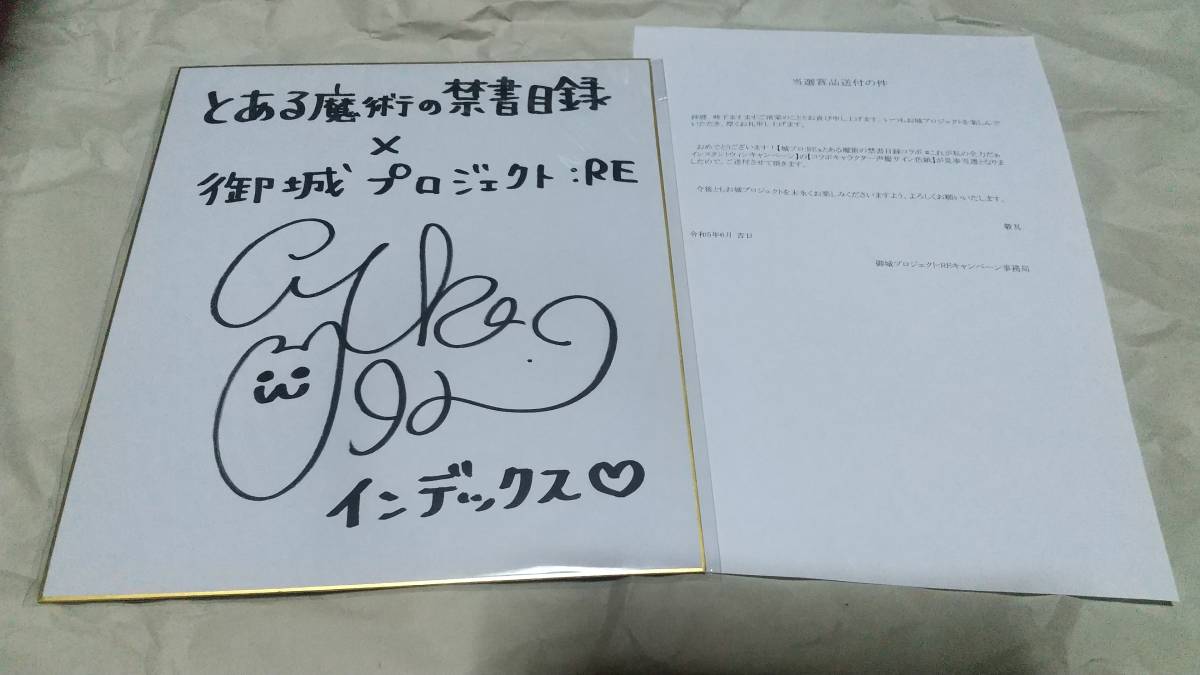 とある魔術の禁書目録
×
御城プロジェクト:RE
インデックス♡
当選賞品送付の件
拝啓 時下ますますご清栄のこととお喜び申し上げます。いつもお城プロジェクトを楽しんで
いただき、厚くお礼申し上げます。
おめでとうございます!【城プロ:RE×とある魔術の禁書目録コラボ #これが私の全力だぁ
インスタントウィンキャンペーン】の【コラボキャラクター声優サイン色紙】が見事当選となりま
したので、ご送付させて頂きます。
今後ともお城プロジェクトを末永くお楽しみくださいますよう、よろしくお願いいたします。
敬具
令和5年6月 吉日
御城プロジェクト:REキャンペーン事務局